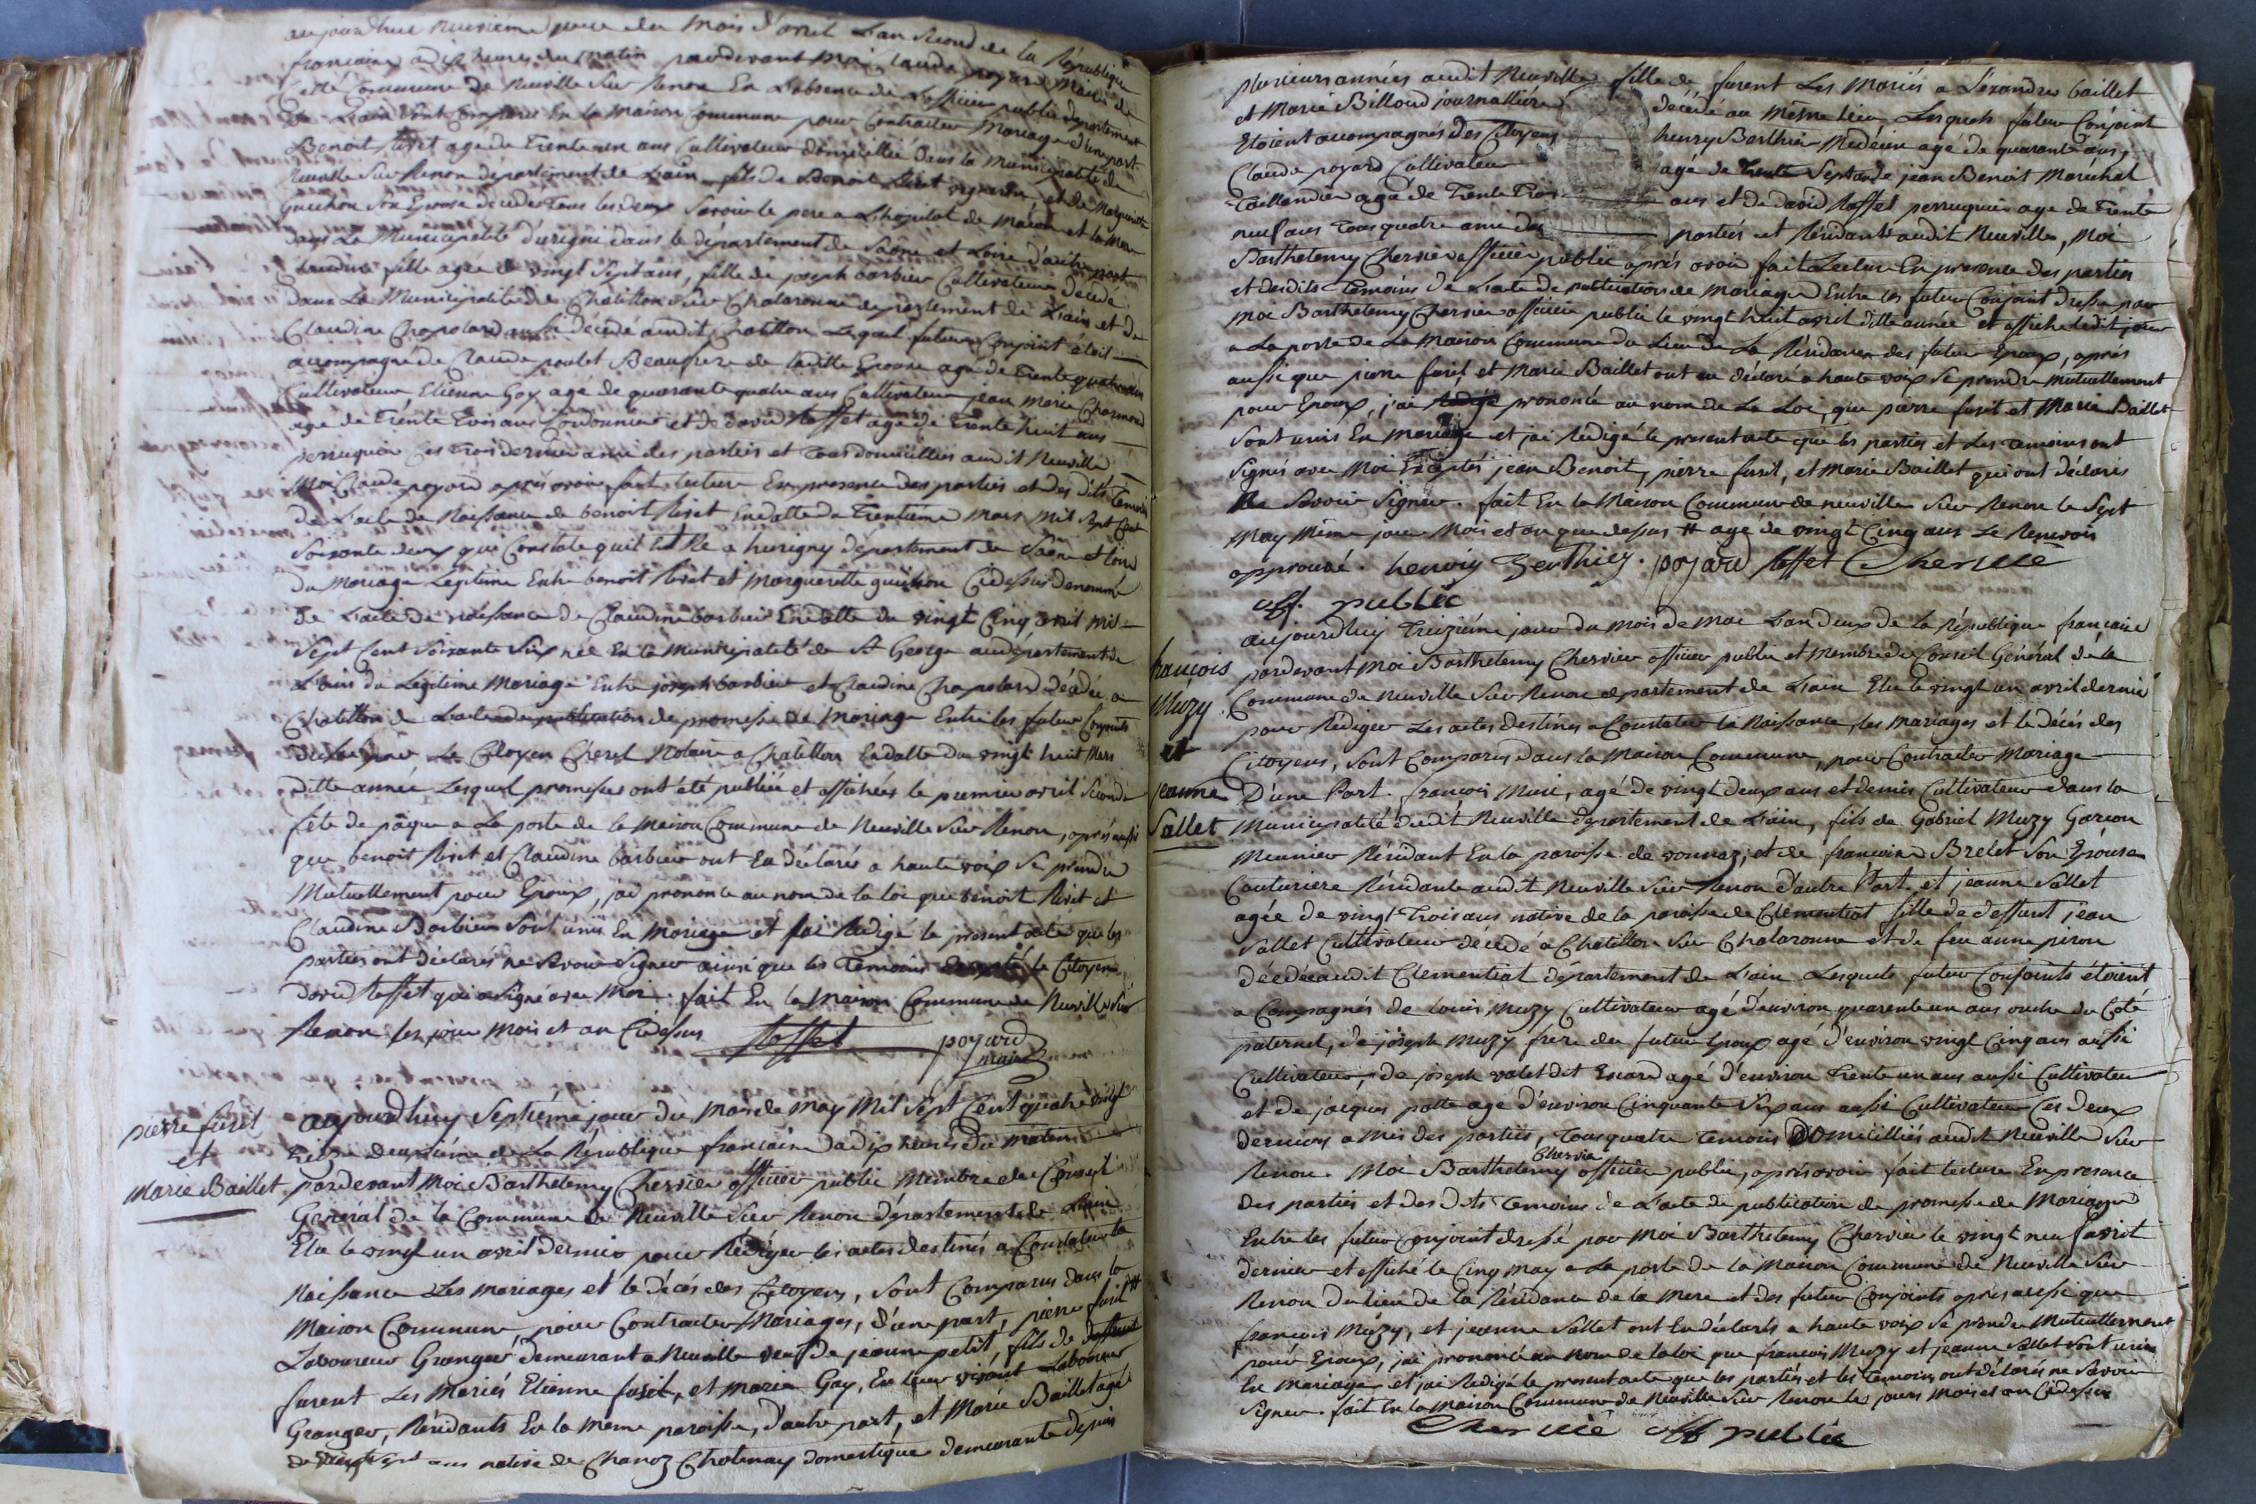 aujourd'hui neuvieme jour du mois d'avril L'an second de la République
francaine a dix heures du matin pardevant Moi Claude poyard Maire de
Cette Commune de Neuville Sur Renon En L'absence de L'officier public département
de L'ain Sont Comparus En la Maison Commune pour Contracter Mariage d'une part
Benoit Rivet agé de Trente un ans Cultivateur domicillié dans la Municipalité de
Neuville Sur Renon département de L'ain fils de Benoit Rivet vigneron et de Marguerite
Guichon Son Epouse décédés Tous les deux Savoir le pere a L'hopital de Macon et la Mere
dans La Municipalité d'urigni dans le département de Saone et Loire d'autre part
Claudine fille agée de vingt Sept ans, fille de joseph barbier Cultivateur décédé
dans La Municipalité de Chatillon Sur Chalaronne département de L'ain et de
Claudine Chapolard aussi décédé audit Chatillon Lequel futur Conjoint étoit
accompagné de Claude poulet Beaufrere de laditte Epouse agé de Trente quatre ans
Cultivateur, Etienne Gay agé de quarante quatre ans Cultivateur jean Marie Charmond
agé de Trente Trois ans Cordonnier et de david Roffet agé de Trente huit ans
perruquier Ces Trois dernier amis des parties et Tous domicilliés audit Neuville
Moi Claude poyard après avoir fait lecture En presence des parties et des dits Temoins
de L'acte de Naissance de benoit Rivet En datte du Trentieme Mars Mil Sept Cent
Soixante deux qui Constate quil Est Né a hurigny département de Saone et Loire
du Mariage Legitime Entre benoit Rivet et Marguerite guichon Cidessus denommé
de L'acte de naissance de Claudine barbier En datte du vingt Cinq avril Mil
Sept Cent Soixante Six née En la Municipalité de St George audépartement de
L'ain du Légitime Mariage Entre joseph barbier et Claudine Chapolard décédée a
Chatillon de L'acte de publication de promesse de Mariage Entre les futur Conjoints
Le Citoyen Cherel Notaire a Chatillon En datte du vingt huit Mars
ditte année Lesquel promesses ont été publiée et affichées le premier avril Seconde
fête de pâque a La porte de la Maison Commune de Neuville Sur Renon, après aussi
que benoit Rivet et Claudine barbier ont En déclaré a haute voix Se prendre
Mutuellement pour Epoux, jai prononcé au nom de la loi que benoit Rivet et
Claudine Barbier Sont unis En Mariage et jai Rédigé le present acte que les
parties ont déclarés ne Savoir Signer ainsi que les Temoins Excepté le Citoyen
David Roffet qui a Signé avec Moi. fait En la Maison Commune de Neuville Sur
Renon les jour Mois et an Cidessus Roffet poyard
maire
pierre furet
et
Marie Baillet
aujourdhuy Septiéme jour du Mois de May Mil Sept Cent quatre vingt
treize deuxième de La République francaine a dix heures du matin
pardevant Moi Barthelemy Chervier officier public Membre du Conseil
Général de la Commune de Neuville Sur Renon département de L'ain
Elu le vingt un avril dernier pour Rédiger les actes destinés a Constater la
Naissance Les mariages et le décès des Citoyens, Sont Comparus dans la
Maison Commune pour Contracter Mariages, d'une part, pierre furet #
Laboureur Granger demeurant a Neuville veuf de jeanne petit, fils de deffunt
furent Les Mariés Etienne furet, et Marie Gay, En leur vivant Laboureur
Granger, Résidants En la même paroisse, d'autre part, et Marie Baillet agé
de ans native de Chanoz Chatenay domestique demeurante depuis
plusieurs années audit Neuville, fille de furent Les Mariés a Lexandre baillet
et Marie Billoud journalliére décédé au Même lieu Lesquels futur Conjoint
Etoient accompagnés des Citoyens henry Barthier Médécin agé de quarante ans,
Claude poyard Cultivateur agé de Trente Sept ans de jean Benoit Maréchal
Taillendier agé de Trente Trois ans et de david Roffet perruquier agé de Trente
neuf ans Tous quatre amis des parties et Résidants audit Neuville, Moi
Barthelemy Chervier officier public après avoir fait Lecture En presence des parties
et desdits Temoins de L'acte de publications de Mariage Entre les futur Conjoint dressé par
Moi Barthelemy Chervier officier public le vingt huit avril ditte année et affiché ledit jour
a La porte de La Maison Commune du Lieu de La Résidance des futur Epoux, après
aussi que pierre furet, et Marie Baillet ont En déclaré a haute voix Se prendre Mutuellement
pour Epoux, j'ai prononcé au nom de La Loi, que pierre furet et Marie Baillet
Sont unis En Mariage et jai Rédigé le present acte que les parties et Les Temoins ont
Signés avec Moi Exceptés jean Benoit, pierre furet, et Marie Baillet qui ont déclarés
Ne Savoir Signer. fait En la Maison Commune de neuville Sur Renon le Sept
May Même jour Mois et an que dessus # agé de vingt Cinq ans Le Renvois
approuvé. henry Berthier. poyard Roffet Chervié
off. public
françois
Muzy
et
jeanne
Sallet
aujourdhuy Treiziéme jour du Mois de Mai L'an deux de la République francaise
pardevant Moi Barthelemy Chervier officier public et Membre du Conseil Général de la
Commune de Neuville Sur Renon département de L'ain Elu le vingt un avril dernier
pour Rédiger Les actes destinés a Constater la Naissance, les Mariages et le décès des
Citoyens, Sont Comparus dans la Maison Commune, pour Contracter Mariage
D'une Part. françois Muzi, agé de vingt deux ans et demie Cultivateur dans la
Municipalité dudit Neuville département de L'ain, fils de Gabriel Muzy Garcon
Meunier Résidant En la paroisse de vonnaz, et de francoise Brelet Son Epouse
Couturiere Résidante audit Neuville Sur Renon d'autre Part. et jeanne Sallet
agée de vingt Trois ans native de la paroisse de Clémentiat fille de deffunt jean
Sallet Cultivateur décédé a Chatillon Sur Chalaronne et de feu anne piron
décédé audit Clémentiat département de L'ain Lesquels futur Conjoints étoient
a Compagnés de Louis Muzy Cultivateur agé d'environ quarente un ans oncle du Coté
paternel, de joseph Muzy frere du futur Epoux agé d'environ vingt Cinq ans aussi
Cultivateur, de joseph valet dit Encard agé d'environ Trente un ans aussi Cultivateur
et de jacques patte agé d'environ Cinquante Six ans aussi Cultivateur Ces deux
derniers amis des parties, Tous quatre Temoins Domicilliés audit Neuville Sur
Renon. Moi Barthelemy Chervier officier public, après avoir fait lecture En presence
des parties et des dits Temoins de L'acte de publication de promesse de Mariage
Entre les futur Conjoint dressé par Moi Barthelemy Chervier le vingt neuf avril
dernier et affiché le Cinq May a La porte de la Maison Commune de Neuville Sur
Renon du lieu de la Résidance de la Mere et des futur Conjoints après aussi que
françois Muzy, et jeanne Sallet ont En déclarés a haute voix Se prendre Mutuellement
pour Epoux, jai prononcé au Nom de la loi que francois Muzy et jeanne Sallet Sont unis
En Mariage et jai Rédigé le present acte que les parties et les temoins ont déclarés ne Savoir
Signer. fait En la Maison Commune de Neuville Sur Renon les jours Mois et an Cidessus
Chervié off public